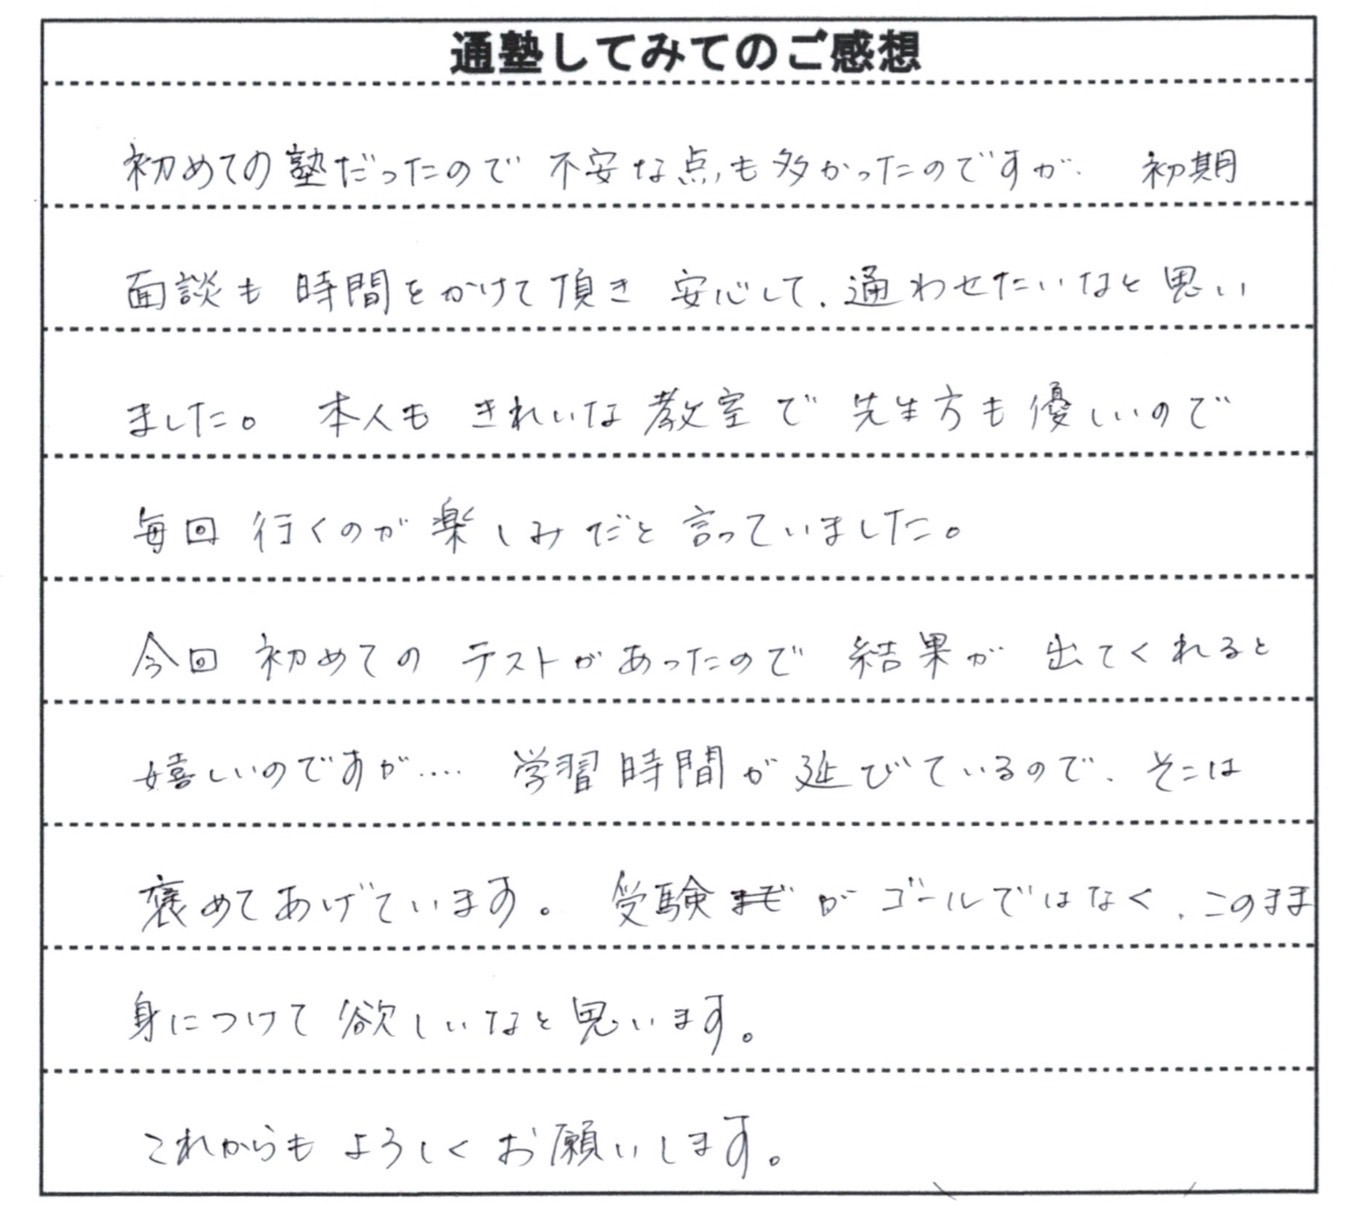 通塾してみてのご感想
初めての塾だったので 不安な点も多かったのですが、 初期
面談も 時間をかけて頂き 安心して、通わせたいなと思い
ました。 本人も きれいな教室で 先生方も優しいので
毎回 行くのが楽しみだと言っていました。
今回 初めての テストがあったので 結果が 出てくれると
嬉しいのですが.... 学習時間が延びているので、そこは
褒めてあげています。 受験がゴールではなく、このまま
身につけて欲しいなと思います。
これからも よろしくお願いします。